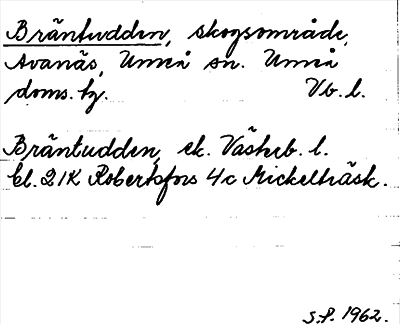 Bräntudden, skogsområde,
Avanäs, Umeå sn. Umeå
doms. tg. Vb. l.
Bräntudden, ek. Västerb. l.
bl. 21K Robertsfors 4c Mickelträsk.
S.P. 1962.